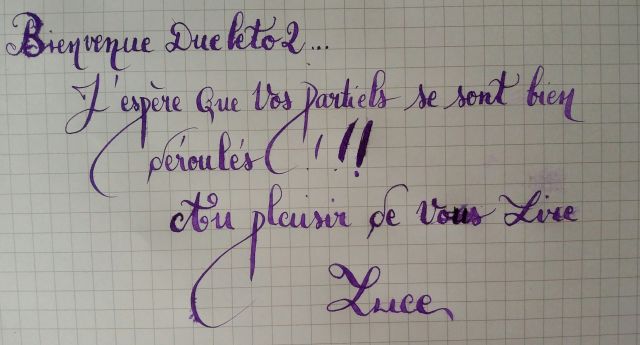 Bienvenue Ducleto2...
J'espère Que Vos partiels se sont bien
déroulés !!!
Au plaisir de vous Lire
Luce